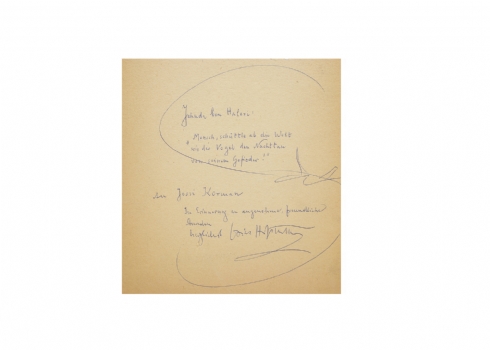 Jehuda ben Halevi:
"Mensch, schüttle ab die Welt
wie der Vogel den Nachttau
von seinem Gefieder!"
Jussi Korman
In Erinnerung an angenehme, freundliche
Stunden